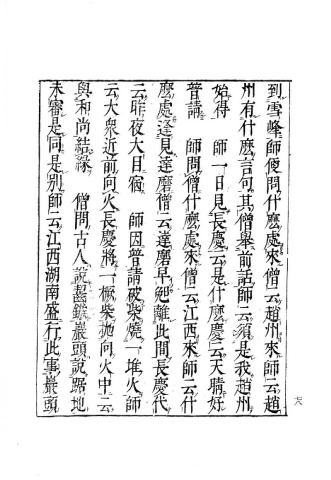 到雪峰師便問什麽處來僧云趙州來師云趙
州有什麽言句其僧舉前話師云須是我趙州
始得　師一日見長慶云是什麽慶云天晴好
普請　師問僧什麽處來僧云江西來師云什
麽處逢見達磨僧云達磨早勉離此間長慶代
云昨夜大目宿　師因普請破柴燒一堆火師
云大衆近前向火長慶將一橛柴抛向火中云
與和尚結緣　僧問古人說齧鏃巖頭說踞地
未審是同是別師云江西湖南盛行此事巖頭
七八